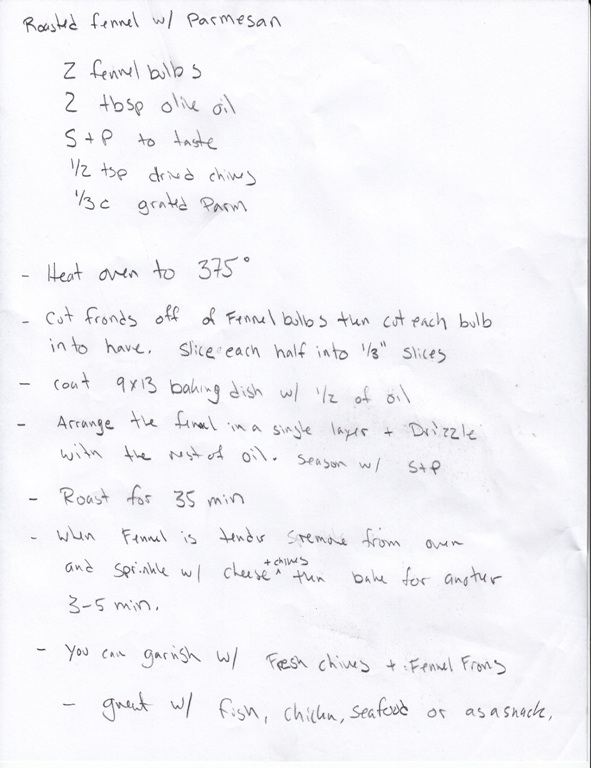 Roasted fennel w/ Parmesan
2 fennel bulbs
2 tbsp olive oil
S+P to taste
1/2 tsp dried chives
1/3 c grated Parm
- Heat oven to 375°
- Cut fronds off of Fennel bulbs then cut each bulb
in to have. Slice each half into 1/3" slices
- coat 9x13 baking dish w/ 1/2 of oil
- Arrange the fennel in a single layer + Drizzle
with the rest of oil. Season w/ S+P
- Roast for 35 min
- When Fennel is tender remove from oven
and sprinkle w/ cheese + chives then bake for another
3-5 min.
- You can garnish w/ Fresh chives + Fennel Frons
- great w/ fish, chicken, seafood or as a snack.